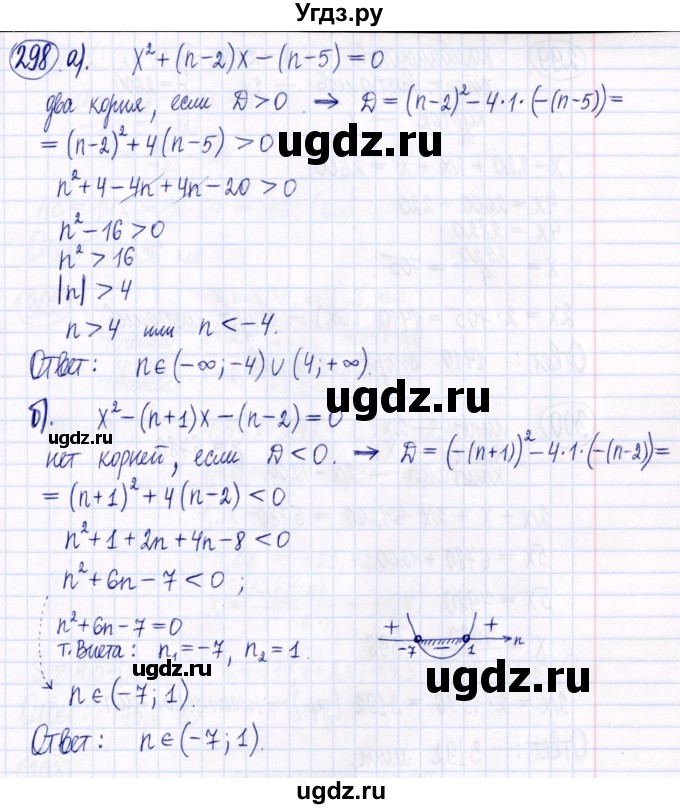 Угдз.ру
298 а). x² + (n-2)x - (n-5) = 0
два корня, если D > 0 → D = (n-2)² - 4·1·(-(n-5)) =
= (n-2)² + 4(n-5) > 0
ugdz.ru
n² + 4 - 4n + 4n - 20 > 0
n² - 16 > 0
n² > 16
|n| > 4
n > 4 или n < -4.
ugdz.ru
Ответ: n ∈ (-∞; -4) ∪ (4; +∞).
ugdz.ru
б). x² - (n+1)x - (n-2) = 0
ugdz.ru
нет корней, если D < 0. → D = (-(n+1))² - 4·1·(-(n-2)) =
= (n+1)² + 4(n-2) < 0
ugdz.ru
n² + 1 + 2n + 4n - 8 < 0
n² + 6n - 7 < 0 ;
n² + 6n - 7 = 0
+ - +
-7 1 n
т. Виета: n₁ = -7, n₂ = 1.
ugdz.ru
n ∈ (-7; 1).
ugdz.ru
Ответ: n ∈ (-7; 1).
ugdz.ru